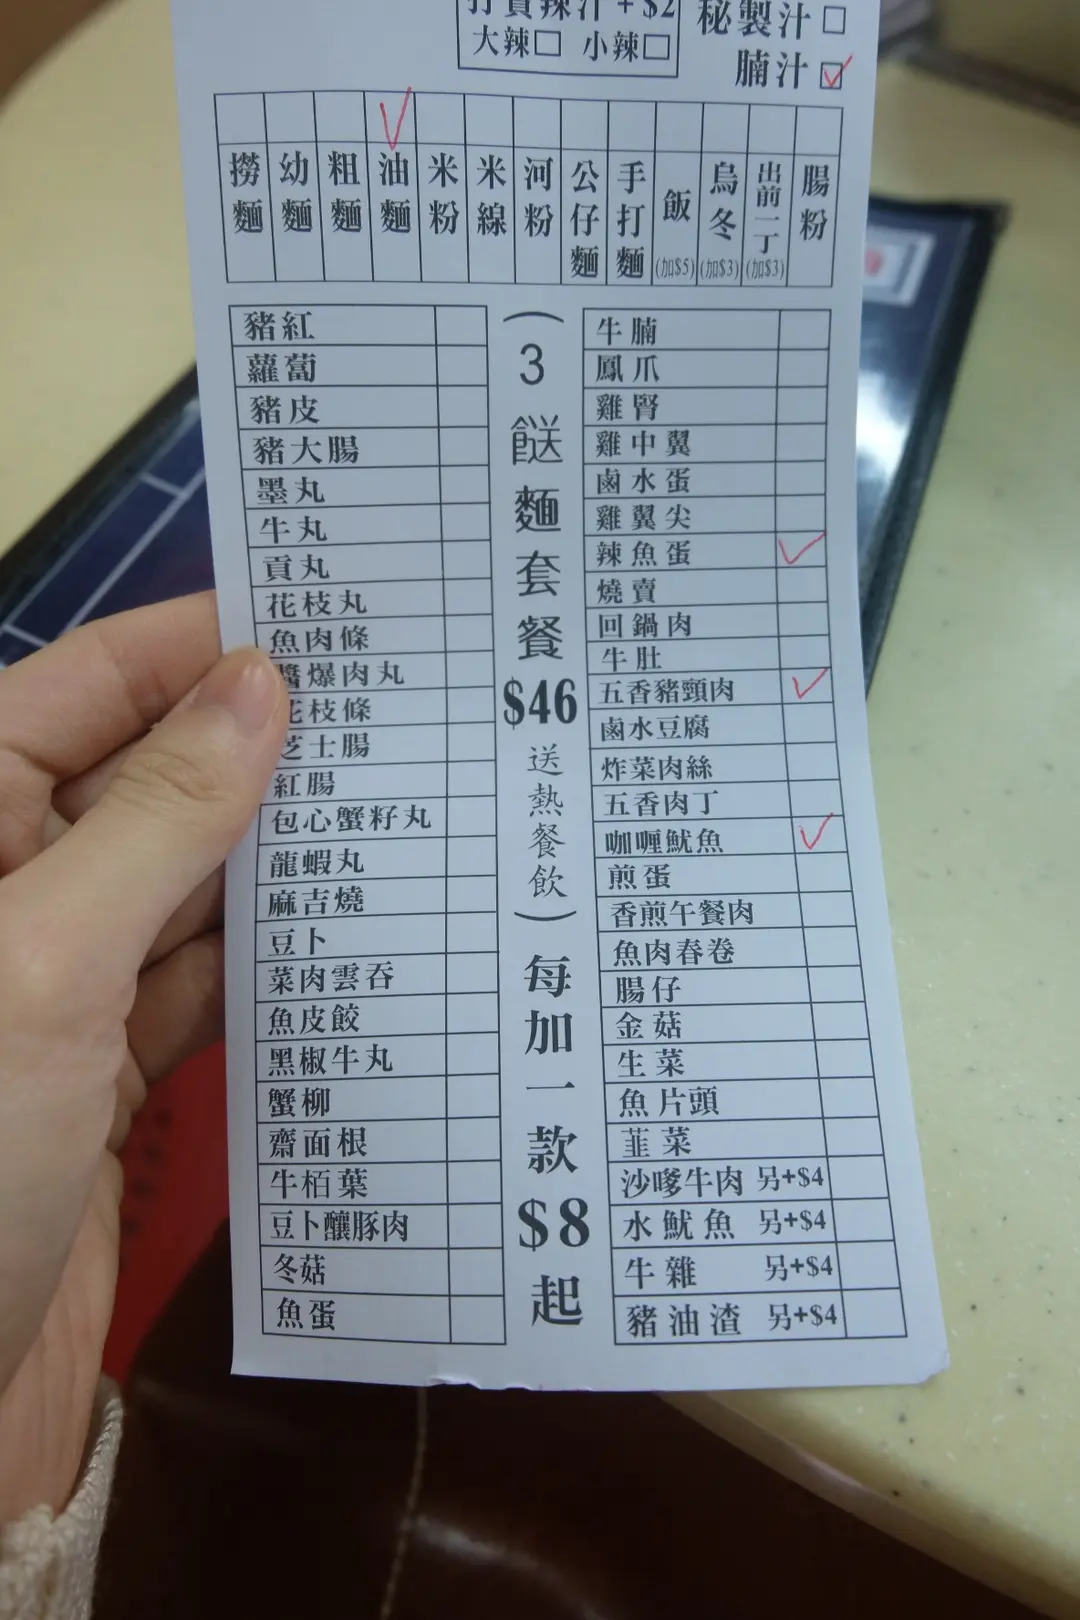 秘製汁
打賞辣汁 + $2
大辣 小辣
腩汁
撈麵
幼麵
粗麵
油麵
米粉
米線
河粉
公仔麵
手打麵
飯 (加$5)
烏冬 (加$3)
出前一丁 (加$3)
腸粉
豬紅
蘿蔔
豬皮
豬大腸
墨丸
牛丸
貢丸
花枝丸
魚肉條
醬爆肉丸
花枝條
芝士腸
紅腸
包心蟹籽丸
龍蝦丸
麻吉燒
豆卜
菜肉雲吞
魚皮餃
黑椒牛丸
蟹柳
齋面根
牛栢葉
豆卜釀豚肉
冬菇
魚蛋
(3餸麵套餐$46送熱餐飲)每加一款$8起
牛腩
鳳爪
雞腎
雞中翼
鹵水蛋
雞翼尖
辣魚蛋
燒賣
回鍋肉
牛肚
五香豬頸肉
鹵水豆腐
炸菜肉絲
五香肉丁
咖喱魷魚
煎蛋
香煎午餐肉
魚肉春卷
腸仔
金菇
生菜
魚片頭
韮菜
沙嗲牛肉 另+$4
水魷魚 另+$4
牛雜 另+$4
豬油渣 另+$4